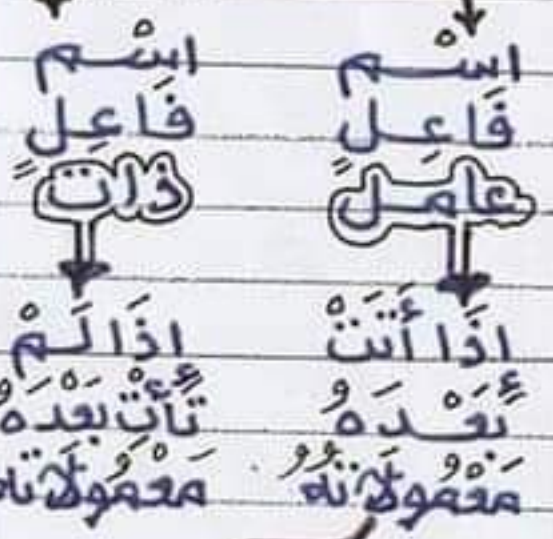 اسْم
فَاعِلٍ
عامل
إذَا أَتَتْ
بَعْدَهُ
مَعْمُولَاتهُ
اسْم
فَاعِلٍ
ذات
إذَا لَمْ
تَأْتِ بَعْدَهُ
مَعْمُولَاته